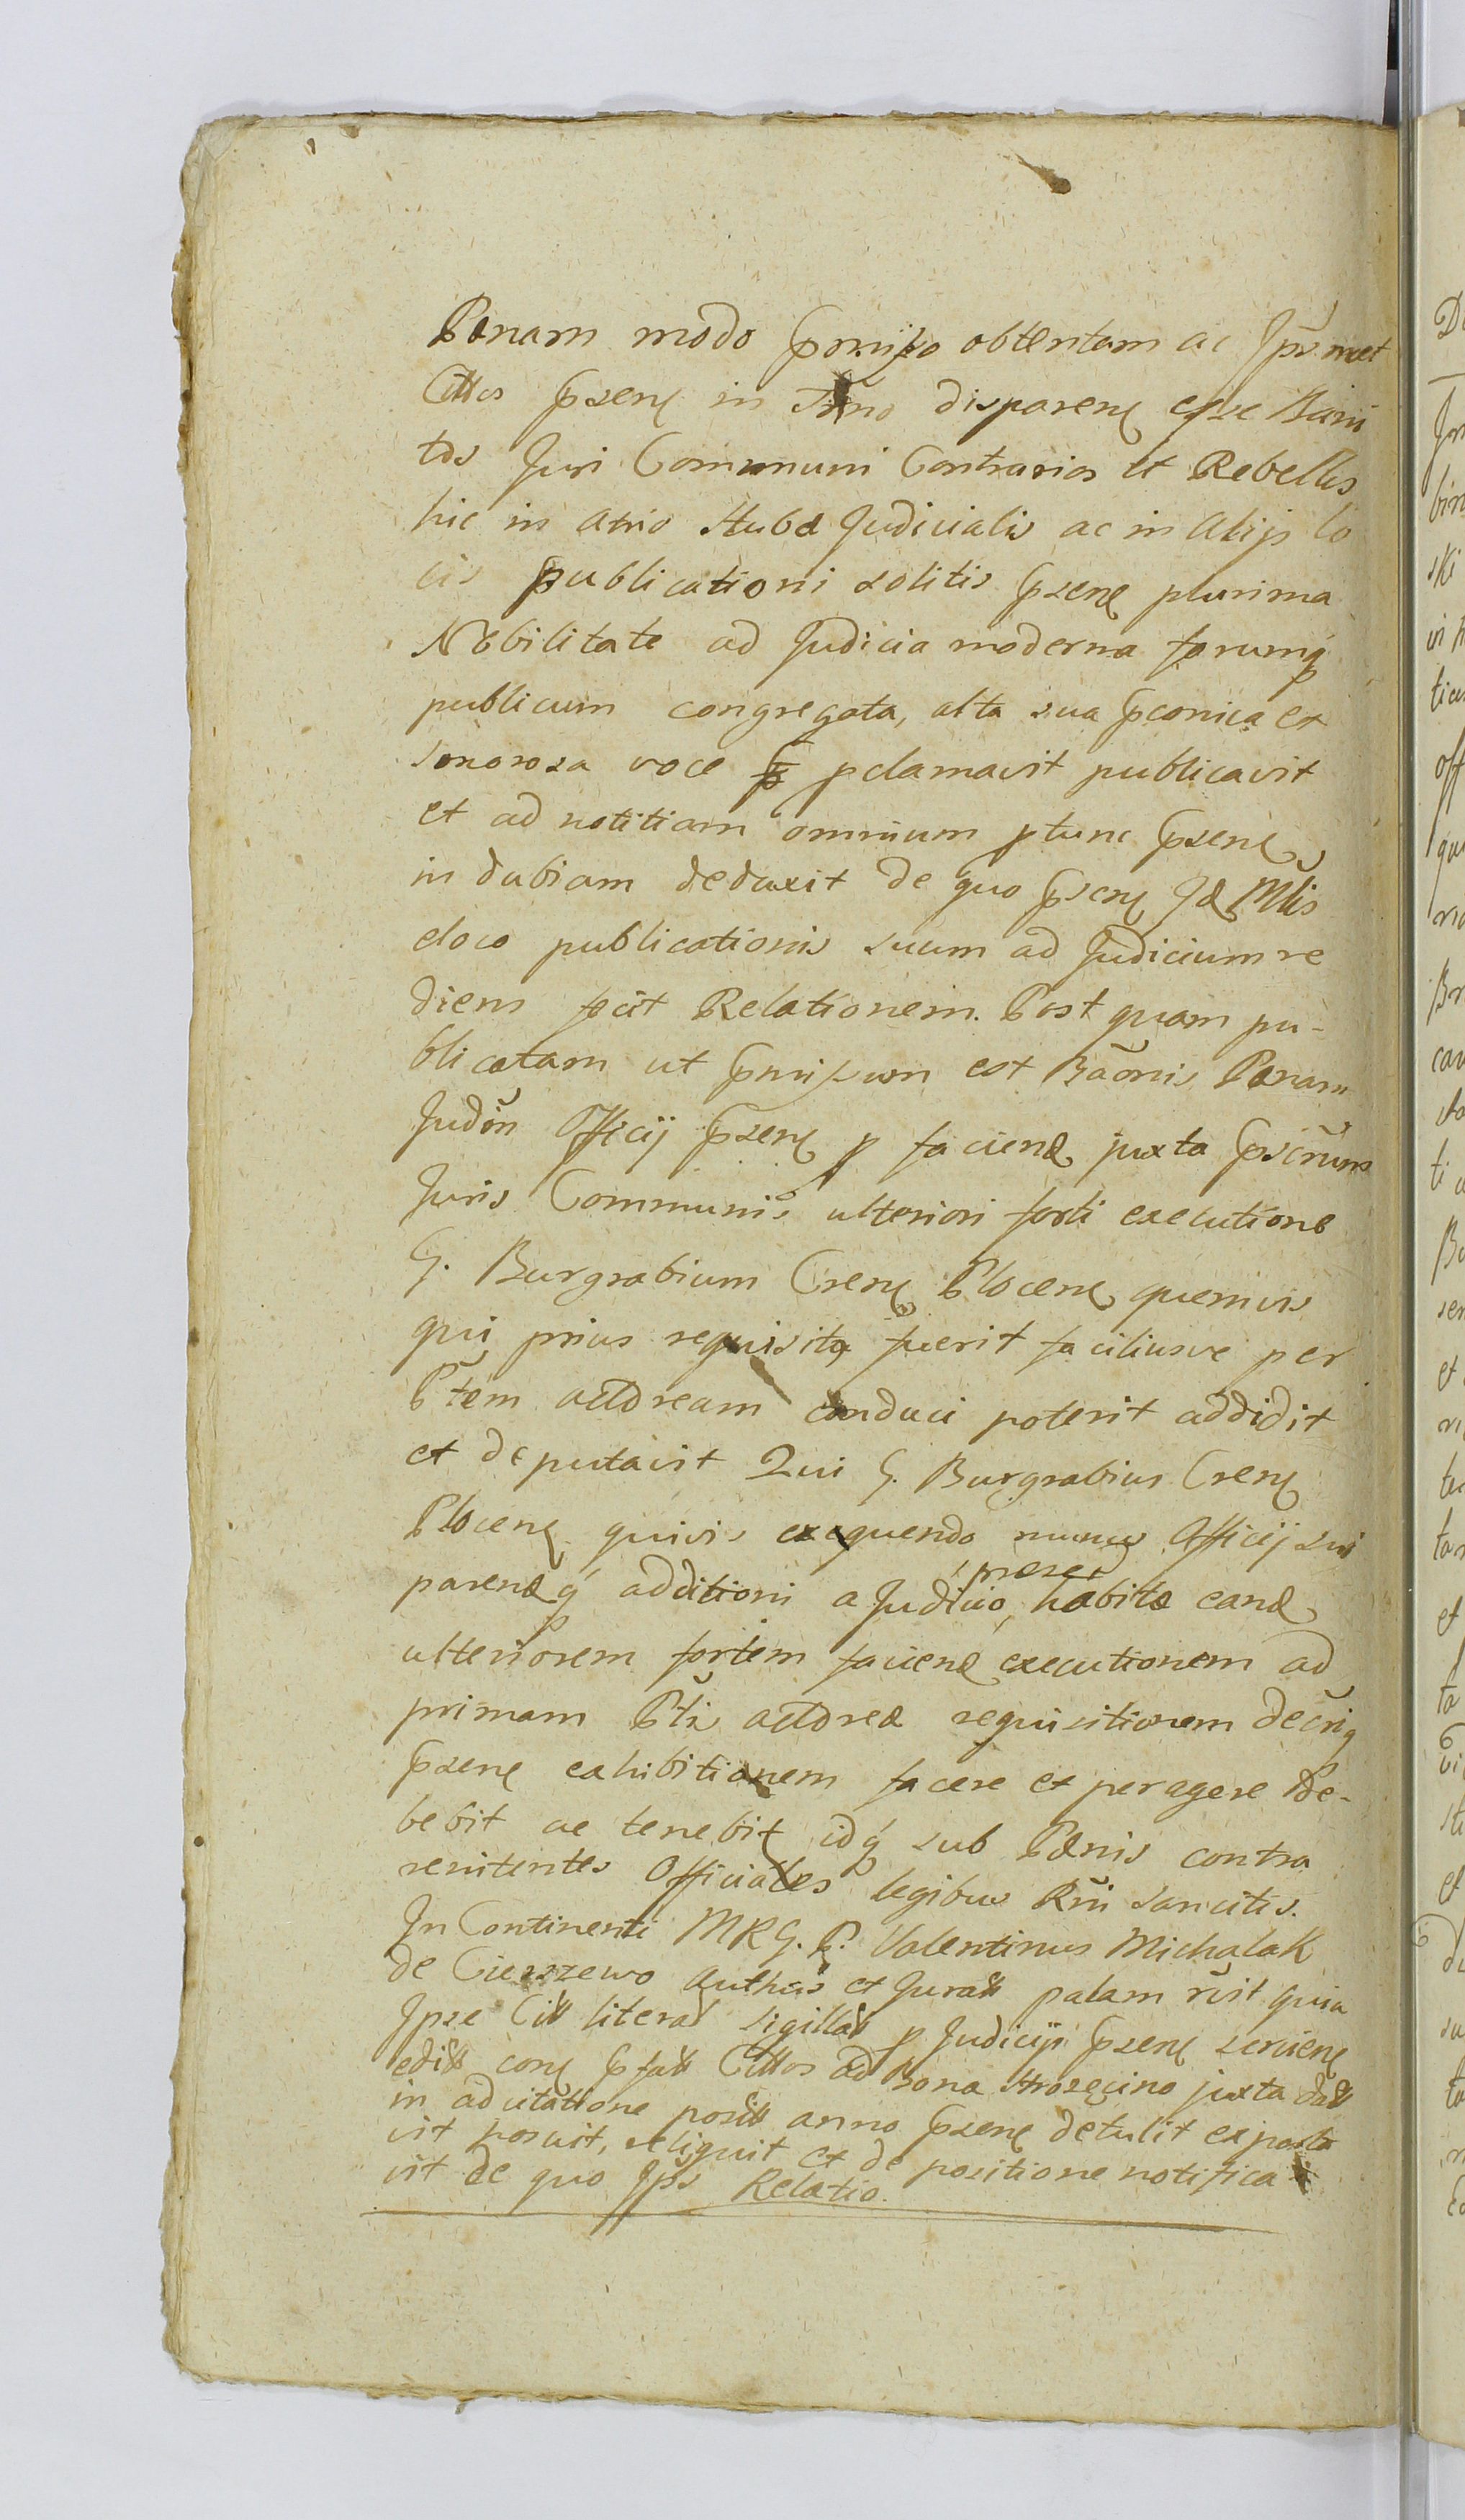 Pænam modo pmisso obtentam ac Ipsmet
Cittos psens in Trno disparens esse Bani
tos Juri Communi Contrarios et Rebelles
hic in atrio stubæ Judicialis ac in alijs lo
cis publicationi solitis psens plurima
Nobilitate ad Judicia moderna forumq
publicum congregata, alta sua pconica et
sonorosa voce pclamavit publicavit
et ad notitiam omnium ptunc psens
in dubiam deduxit de quo psens Id Mlis
eloco publicationis suum ad Judicium re
diens fecit Relationem. Post quam pu-
blicatam ut pmissum est Baonis Pænam
Judm Officij psens p faciend juxta pscrum
Juris Communis ulteriori forti executione
G. Burgrabium Crens Plocens quemvis
qui prius requisitg fuerit faciliusve per
Ptem actoream conduci poterit addidit
et deputavit Qui G. Burgrabius Crens
Plocens quivis exequendo munus Officij sui
parendq additioni a Judicio, præsed habitæ eand
ulteriorem fortem faciend executionem ad
primam Ptis actoreæ requisitionem decriq
psens exhibitionem facere et peragere de-
bebit ac tenebit idq sub Pænis contra
renitentes Officiales legibus Rni sancitis.
In Continenti MRG. P. Valentinus Michalak
de Cieszewo authus et Juratt palam rsit quia
Ipse Citt literad sigillatt p Judicijs psens serviens
editt cong pfatt Cittos ad Bona Strozęcino juxta datt
in adcitatione positt anno psens detulit exporta
vit posuit, reliquit et de positione notifica
vit de quo Ips Relatio.